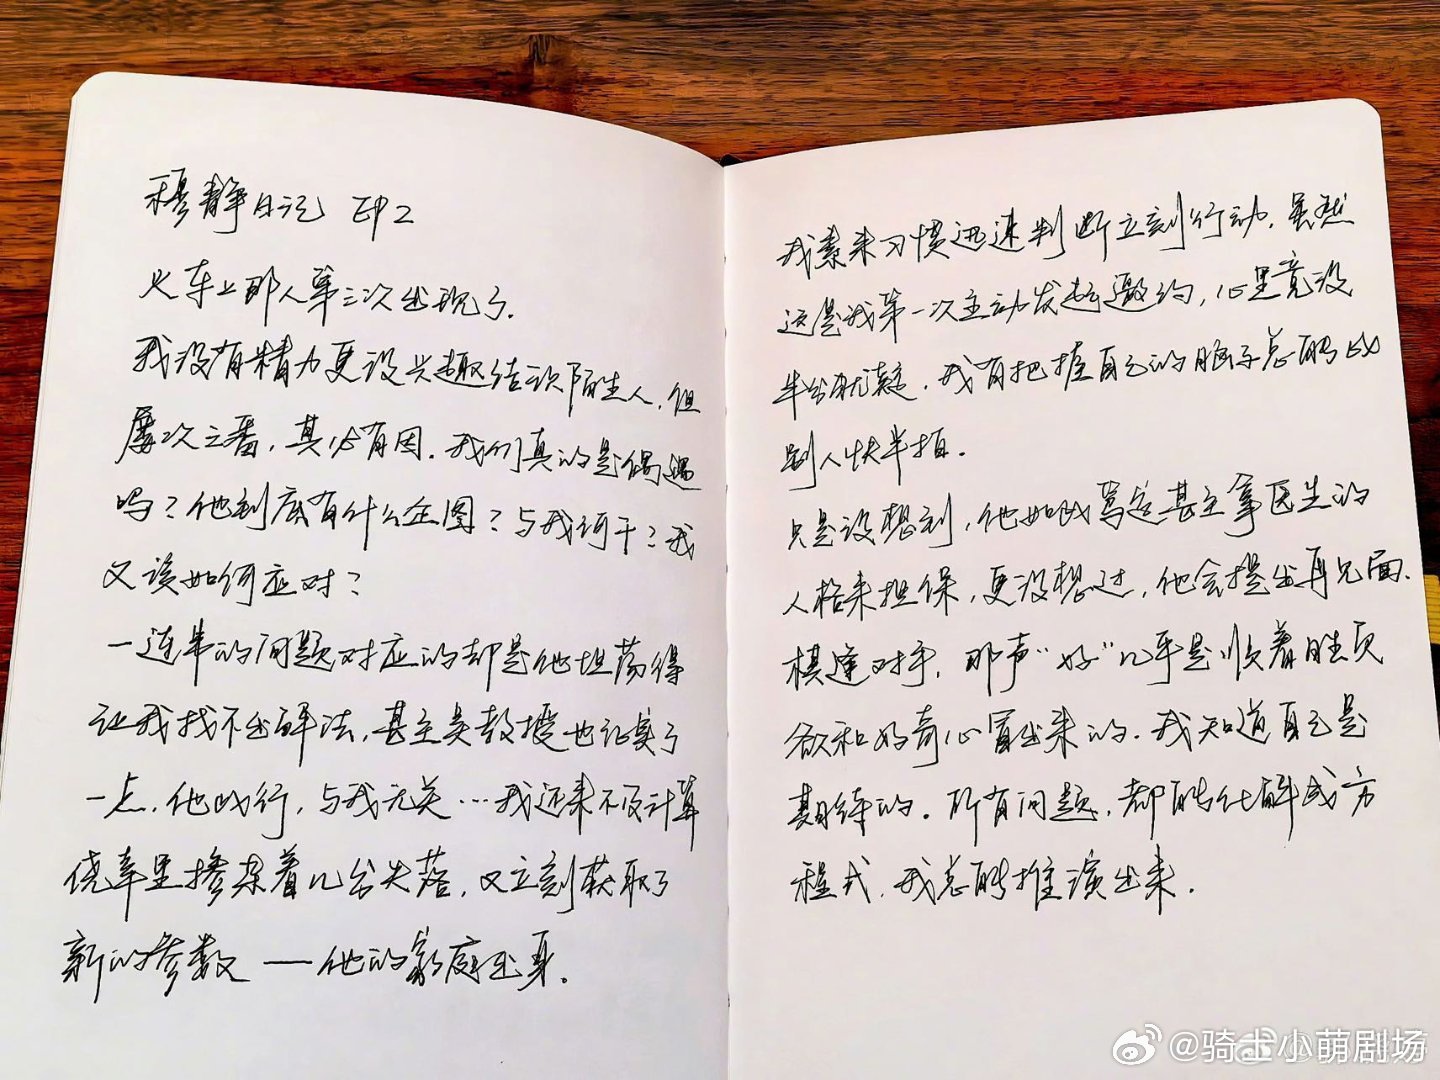 穆静日记 EP2
火车上那人第三次出现了.
我没有精力更没兴趣结识陌生人.但
屡次三番,其必有因.我们真的是偶遇
吗?他到底有什么企图?与我何干?我
又该如何应对?
一连串的问题对应的却是他坦荡得
让我找不出解法,甚至吴教授也证实了
一点.他此行,与我无关…我还来不及计算
侥幸里掺杂着几分失落,又立刻获取了
新的参数——他的家庭出身.
我素来习惯迅速判断立刻行动.虽然
这是我第一次主动发起邀约,心里竟没
半分犹疑.我有把握自己的脑子总能比
别人快半拍.
只是没想到,他如此笃定甚至拿医生的
人格来担保,更没想过,他会提出再见面.
棋逢对手,那声"好"几乎是顺着胜负
欲和好奇心冒出来的.我知道自己是
期待的.所有问题,都能化解成方
程式.我总能推演出来.
@骑士小萌剧场